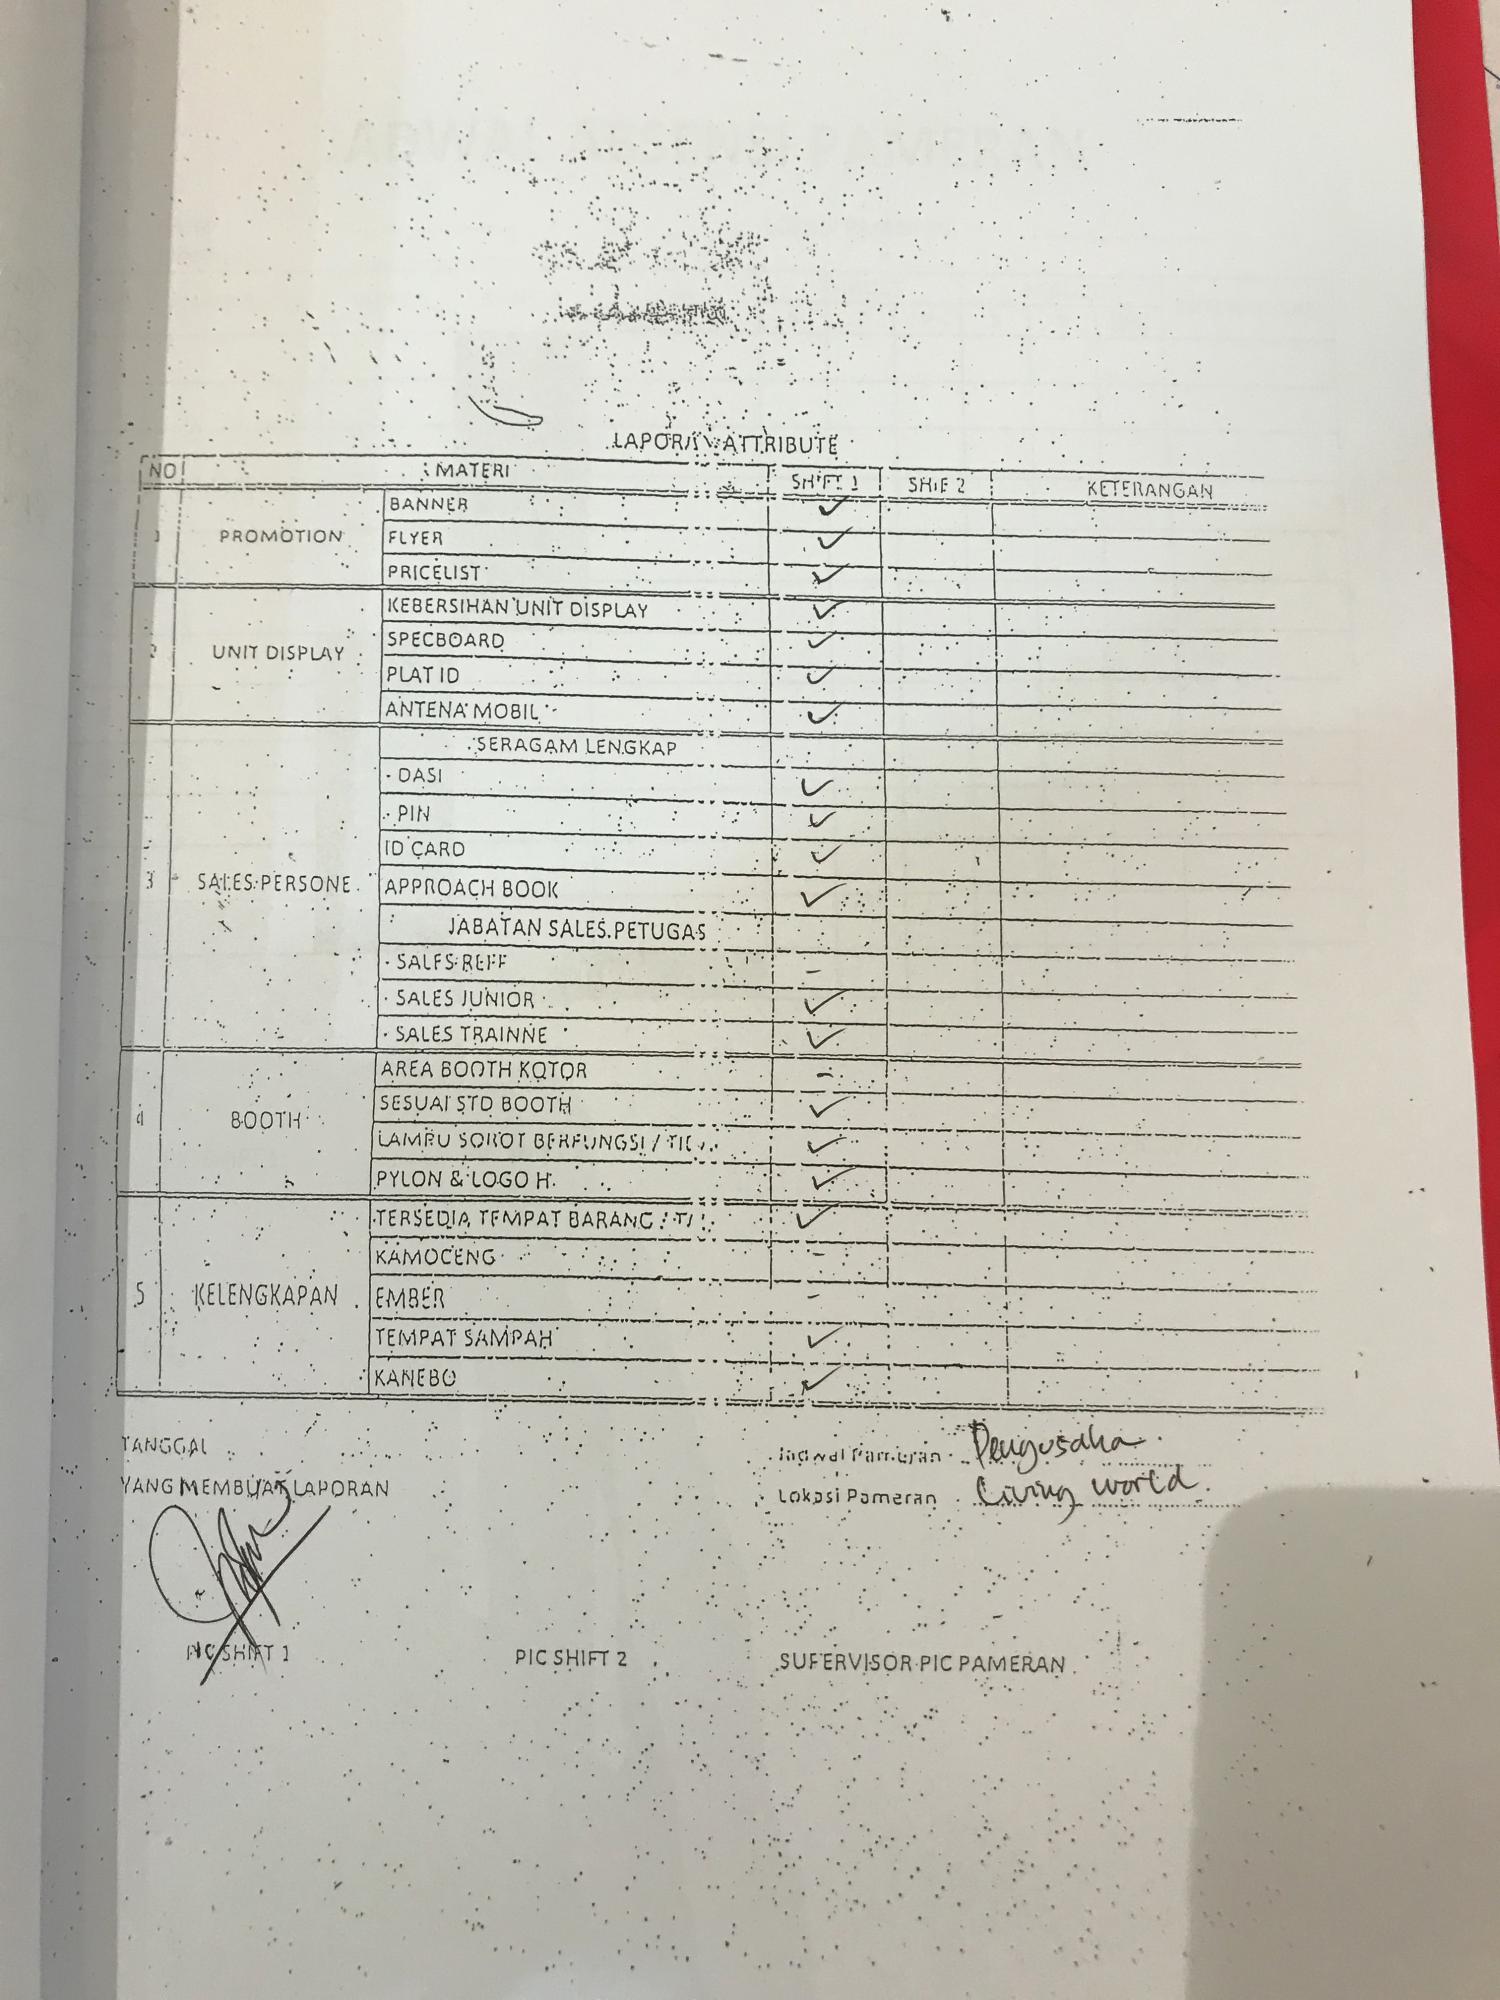 LAPORAN ATTRIBUTE
NO MATERI SHIFT 1 SHIF 2 KETERANGAN
1 PROMOTION BANNER ✓
FLYER ✓
PRICELIST ✓
2 UNIT DISPLAY KEBERSIHAN UNIT DISPLAY ✓
SPECBOARD ✓
PLAT ID ✓
ANTENA MOBIL ✓
3 SALES PERSONE SERAGAM LENGKAP
· DASI ✓
· PIN ✓
ID CARD ✓
APPROACH BOOK ✓
JABATAN SALES PETUGAS
· SALES REFF -
· SALES JUNIOR ✓
· SALES TRAINNE ✓
4 BOOTH AREA BOOTH KOTOR -
SESUAI STD BOOTH ✓
LAMPU SOROT BERFUNGSI / ✓
PYLON & LOGO H ✓
5 KELENGKAPAN TERSEDIA TEMPAT BARANG / ✓
KAMOCENG -
EMBER -
TEMPAT SAMPAH ✓
KANEBO ✓
TANGGAL
YANG MEMBUAT LAPORAN
Jadwal Pameran Pengusaha
Lokasi Pameran Living world.
PIC SHIFT 1 PIC SHIFT 2 SUPERVISOR PIC PAMERAN